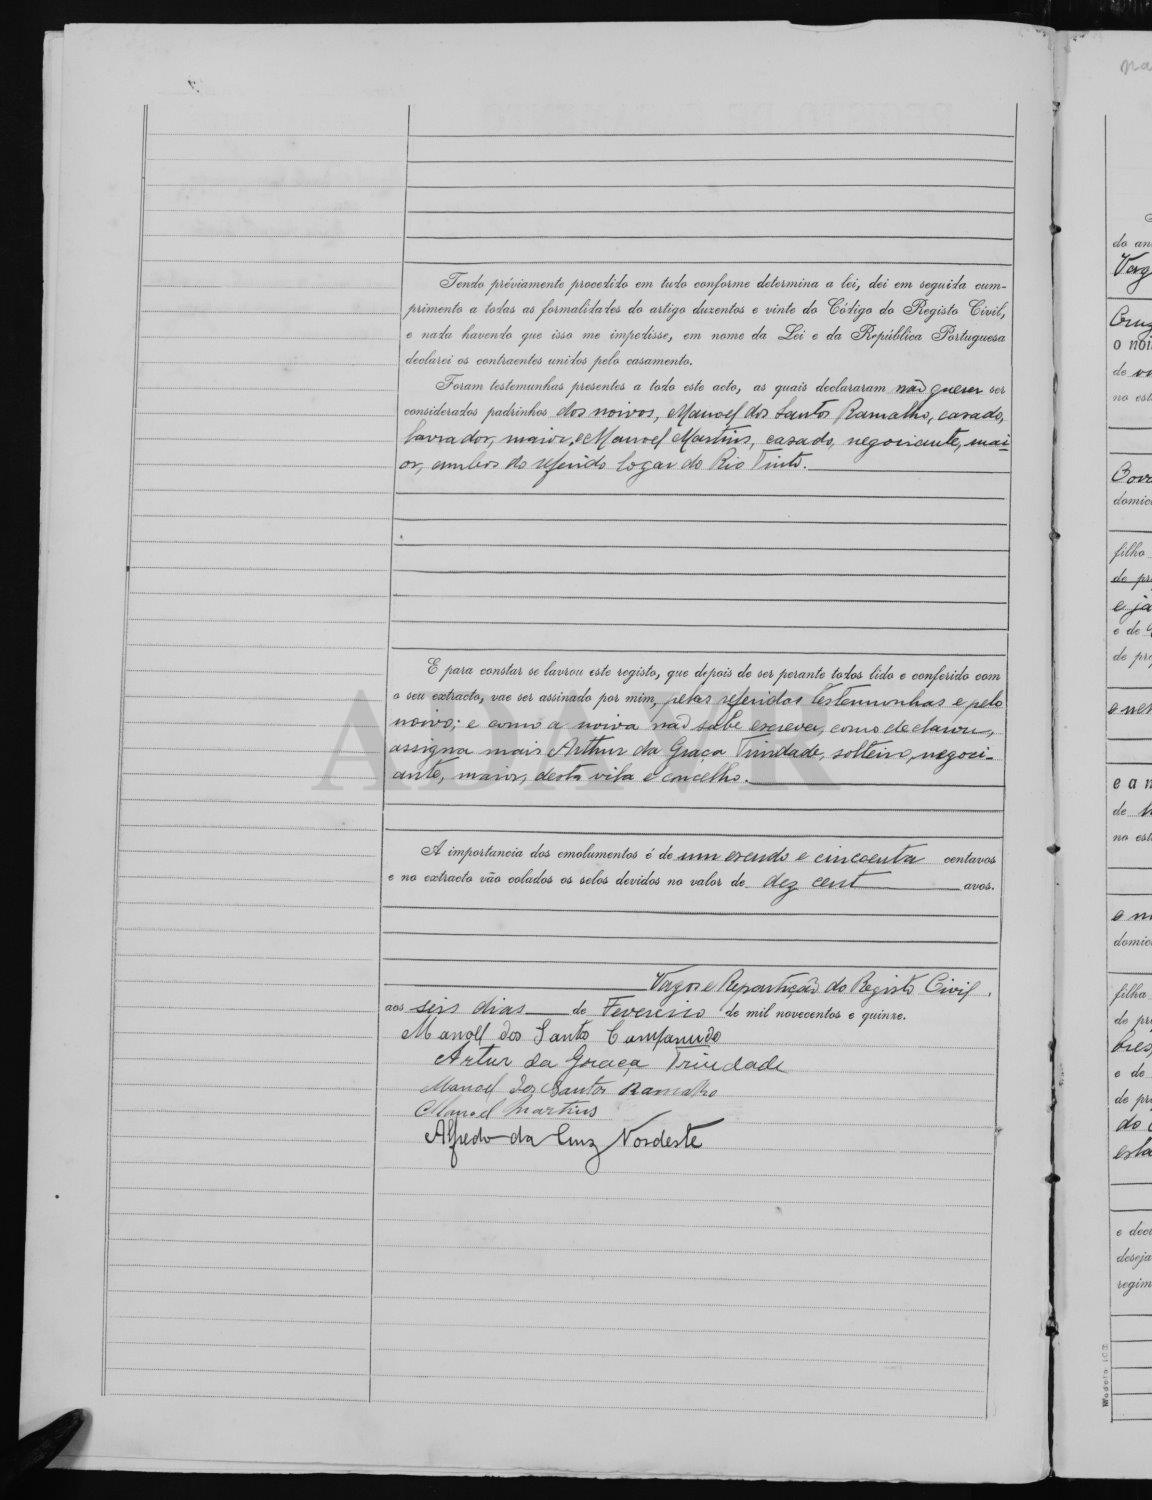 Tendo préviamente procedido em tudo conforme determina a lei, dei em seguida cum-
primento a todas as formalidades do artigo duzentos e vinte do Código do Registo Civil,
e nada havendo que isso me impedisse, em nome da Lei e da República Portuguesa
declarei os contraentes unidos pelo casamento.
Foram testemunhas presentes a todo este acto, as quais declararam não querer ser
considerados padrinhos dos noivos, Manoel dos Santos Ramalho, casado,
lavrador, maior, e Manoel Martins, casado, negociante, mai-
or, ambos do referido logar do Rio Tinto.
E para constar se lavrou este registo, que depois de ser perante todos lido e conferido com
o seu extracto, vae ser assinado por mim, pelas referidas testemunhas e pelo
noivo; e como a noiva não sabe escrever, como declarou,
assigna mais Arthur da Graça Trindade, solteiro, negoci-
ante, maior, desta vila e concelho.
ADAVR
A importancia dos emolumentos é de um escudo e cincoenta centavos
e no extracto vão colados os selos devidos no valor de dez cent avos.
Vagos e Repartição do Registo Civil,
aos seis dias de Fevereiro de mil novecentos e quinze.
Manoel dos Santos Campanudo
Artur da Graça Trindade
Manoel dos Santos Ramalho
Manoel Martins
Alfredo da Cruz Nordeste
do an
Vag
Cruz
o noi
de
no est
domic
filho
de pr
e ja
e de
de pro
e a n
de
no est
domic
filha
de pro
e de
de pro
do
esta
e dec
deseja
regim